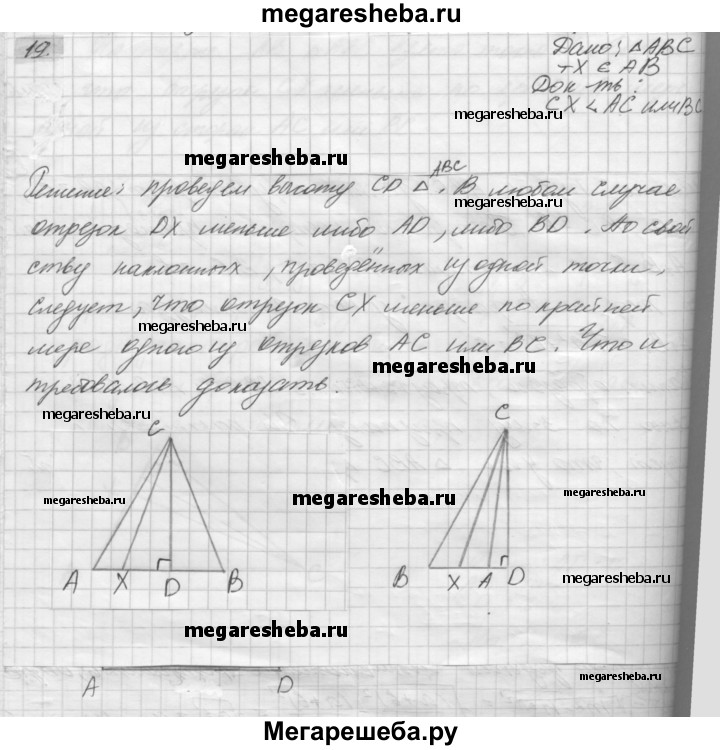 megaresheba.ru
19.
Дано: △ABC
т X ∈ AB
Док-ть:
CX < AC или BC
megaresheba.ru
megaresheba.ru
ABC
Решение: проведем высоту CD △. В любом случае
megaresheba.ru
отрезок DX меньше либо AD, либо BD. По свой
ству наклонных, проведённых из одной точки,
megaresheba.ru
следует, что отрезок CX меньше по крайней
megaresheba.ru
мере одного из отрезков AC или BC. Что и
megaresheba.ru
требовалось доказать.
megaresheba.ru
C
C
megaresheba.ru
megaresheba.ru
megaresheba.ru
A X D B
B X A D
megaresheba.ru
megaresheba.ru
megaresheba.ru
A D
megaresheba.ru
Мегарешеба.ру